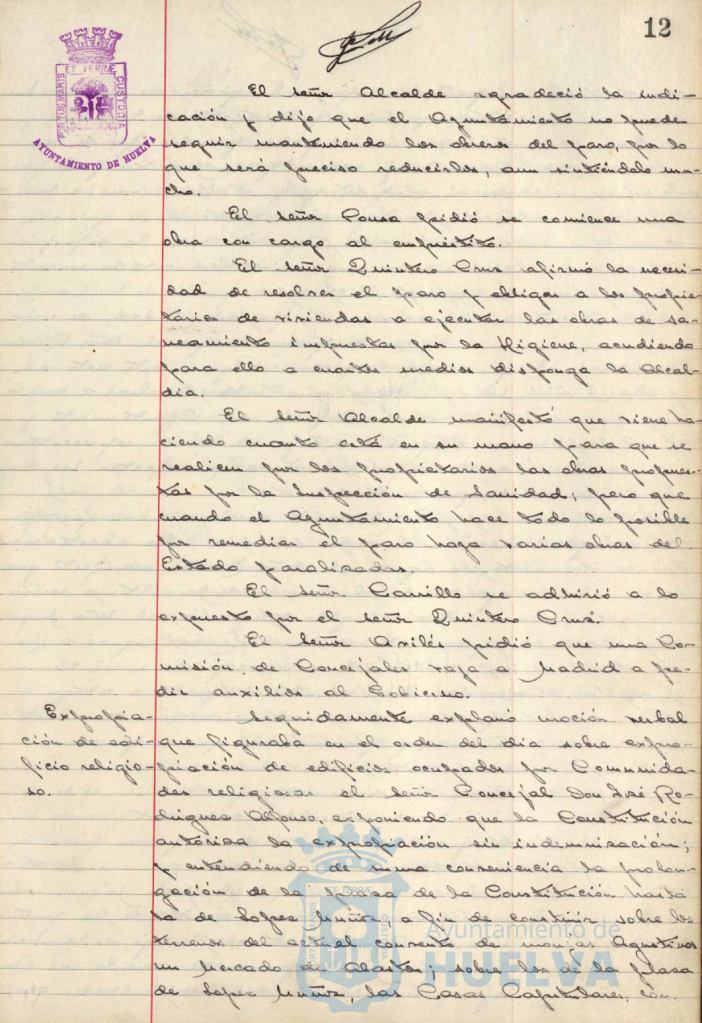 12
PORTUS MARIS ET TERRÆ CUSTODIA
AYUNTAMIENTO DE HUELVA
El señor Alcalde agradeció la indi-
cación y dijo que el Ayuntamiento no puede
seguir manteniendo los obreros del paro, por lo
que será preciso reducirlos, aun sintiéndolo mu-
cho.
El señor Ponsa pidió se comience una
obra con cargo al empréstito.
El señor Quintero Cruz afirmó la necesi-
dad de resolver el paro y obligar a los propie-
tarios de viviendas a ejecutar las obras de sa-
neamiento impuestas por la Higiene, acudiendo
para ello a cuantos medios disponga la Alcal-
día.
El señor Alcalde manifestó que viene ha-
ciendo cuanto está en su mano para que se
realicen por los propietarios las obras propues-
tas por la Inspección de Sanidad; pero que
cuando el Ayuntamiento hace todo lo posible
por remediar el paro haga varias obras del
Estado paralizadas.
El señor Carrillo se adhirió a lo
expuesto por el señor Quintero Cruz.
El señor Avilés pidió que una Co-
misión de Concejales vaya a Madrid a pe-
dir auxilios al Gobierno.
Expropia-
ción de edi-
ficio religio-
so.
Seguidamente explanó moción verbal
que figuraba en el orden del día sobre expro-
piación de edificios ocupados por Comunida-
des religiosas el señor Concejal Don José Ro-
dríguez Alfonso, exponiendo que la Constitución
autoriza la expropiación sin indemnización;
y entendiendo de suma conveniencia la prolon-
gación de la plaza de la Constitución hasta
la de Lopez Muñoz, a fin de construir sobre los
terrenos del actual convento de monjas Agustinas
un Mercado de Abastos; sobre los de la plaza
de Lopez Muñoz, las Casas Capitulares, con
Ayuntamiento de
HUELVA